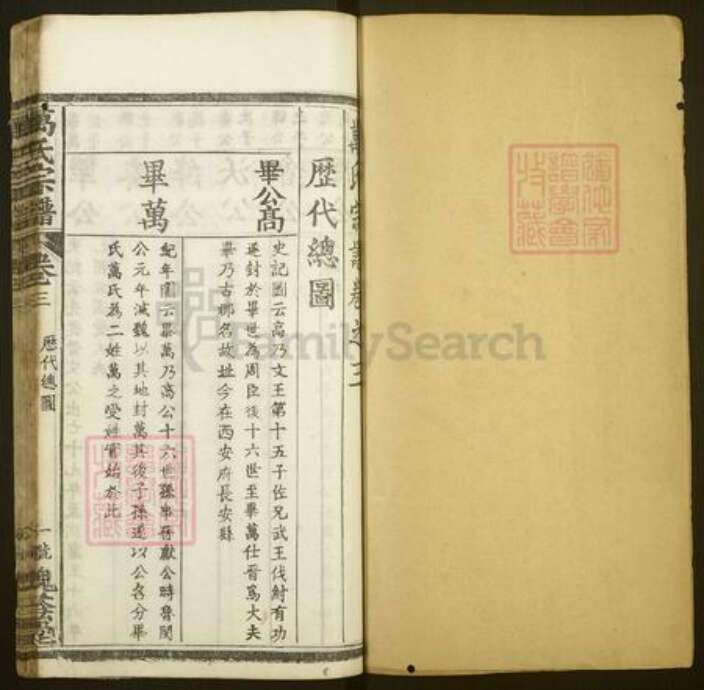 萬氏宗譜卷之三
歷代總圖
畢公高
史記圖云高乃文王第十五子佐兄武王伐紂有功
遂封於畢世為周臣後十六世至畢萬仕晉為大夫
畢乃古鄉名故址今在西安府長安縣
畢萬
紀年圖云畢萬乃高公十六世孫事晉獻公時魯閔
公元年滅魏以其地封萬其後子孫遂以公名分畢
氏萬氏為二姓萬之受姓實始於此
萬氏宗譜
卷三
歷代總圖
一號
槐蔭堂
FamilySearch